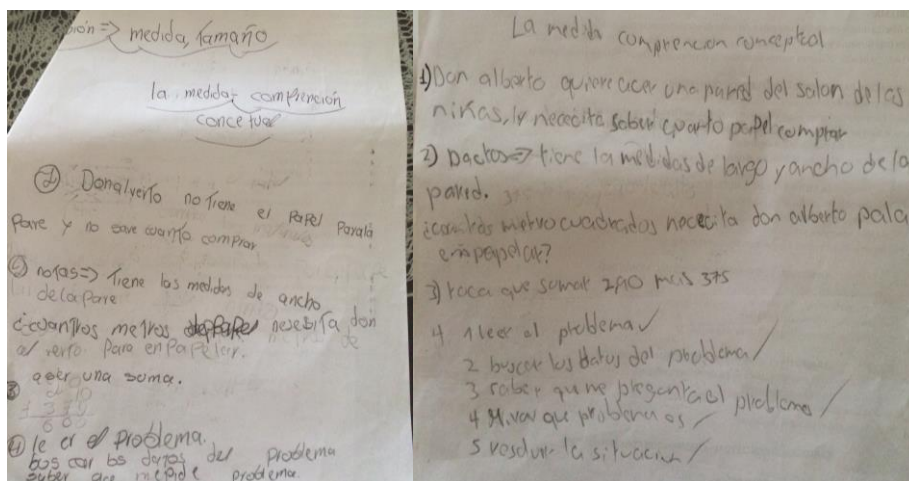 ión => medida, tamaño
la medida comprención
concetual
① Don alverto no tiene el papel para la
pare y no save cuanto comprar
② notas => tiene las medidas de ancho
de la pare
¿cuantros metros nesesita don
al verto para en papelar.
③ aser una suma.
④ le er el problema.
bos car los datos del problema
suber que me pide problema.
La medida comprencion conceptual
1) Don alberto quiere acer una pared del salon de las
niñas, y nececita saber cuanto papel comprar
2) Dactos => tiene la medidas de largo y ancho de la
pared.
¿cuantos metros cuadrados nececita don alberto pala
empapelar?
3) toca que sumar 290 mas 375
4 1 leer el problema ✓
2 buscar los datos del problema /
3 saber qu me preganta el problema /
4 Mirar que problema es /
5. resolver la situacion /